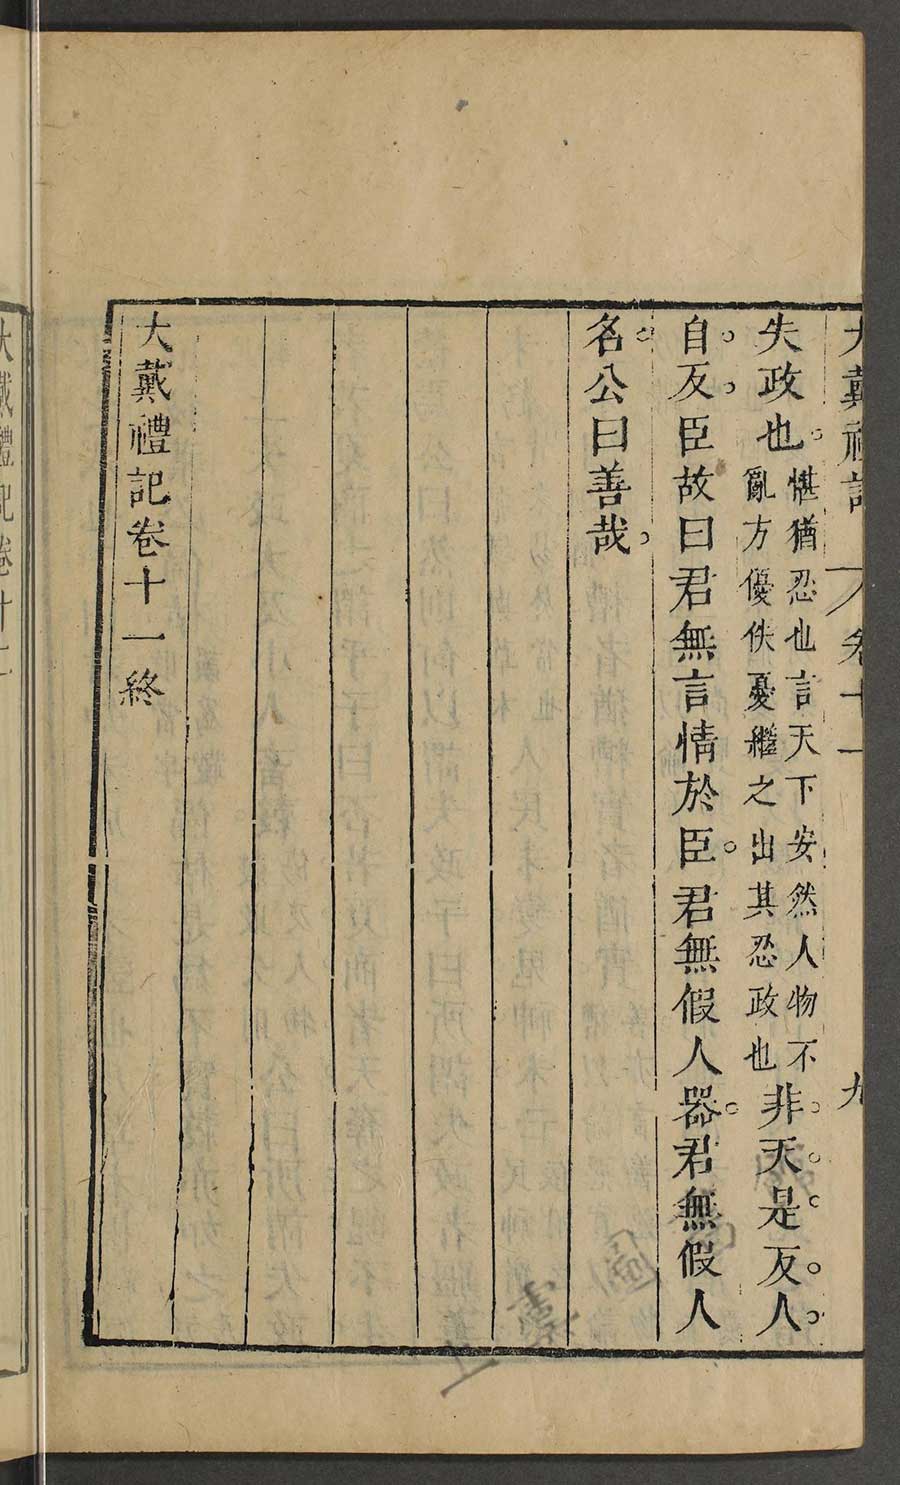 大戴禮記 卷十一 九
失政也。
愖猶忍也言天下安然人物不
亂方優佚憂繼之出其忍政也
非。天。是。反。人。
自。反。臣故曰君無言情於臣。君無假人器。君無假人
名。公曰善哉。
大戴禮記卷十一終
大戴禮記卷十二